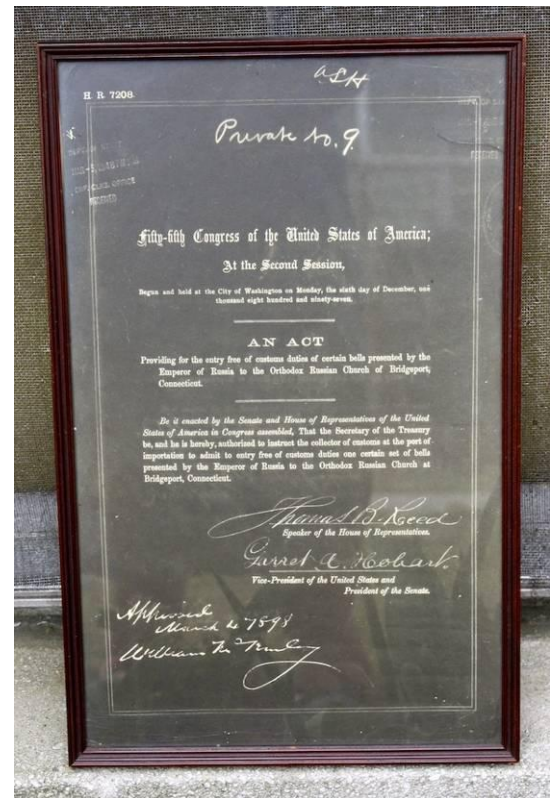 aSH
H. R. 7208.
Private No. 9.
Fifty-fifth Congress of the United States of America;
At the Second Session,
Begun and held at the City of Washington on Monday, the sixth day of December, one
thousand eight hundred and ninety-seven.
AN ACT
Providing for the entry free of customs duties of certain bells presented by the
Emperor of Russia to the Orthodox Russian Church of Bridgeport,
Connecticut.
Be it enacted by the Senate and House of Representatives of the United
States of America in Congress assembled, That the Secretary of the Treasury
be, and he is hereby, authorized to instruct the collector of customs at the port of
importation to admit to entry free of customs duties one certain set of bells
presented by the Emperor of Russia to the Orthodox Russian Church at
Bridgeport, Connecticut.
Thomas B. Reed
Speaker of the House of Representatives.
Garret A. Hobart.
Vice-President of the United States and
President of the Senate.
Approved
March 4 1898
William McKinley